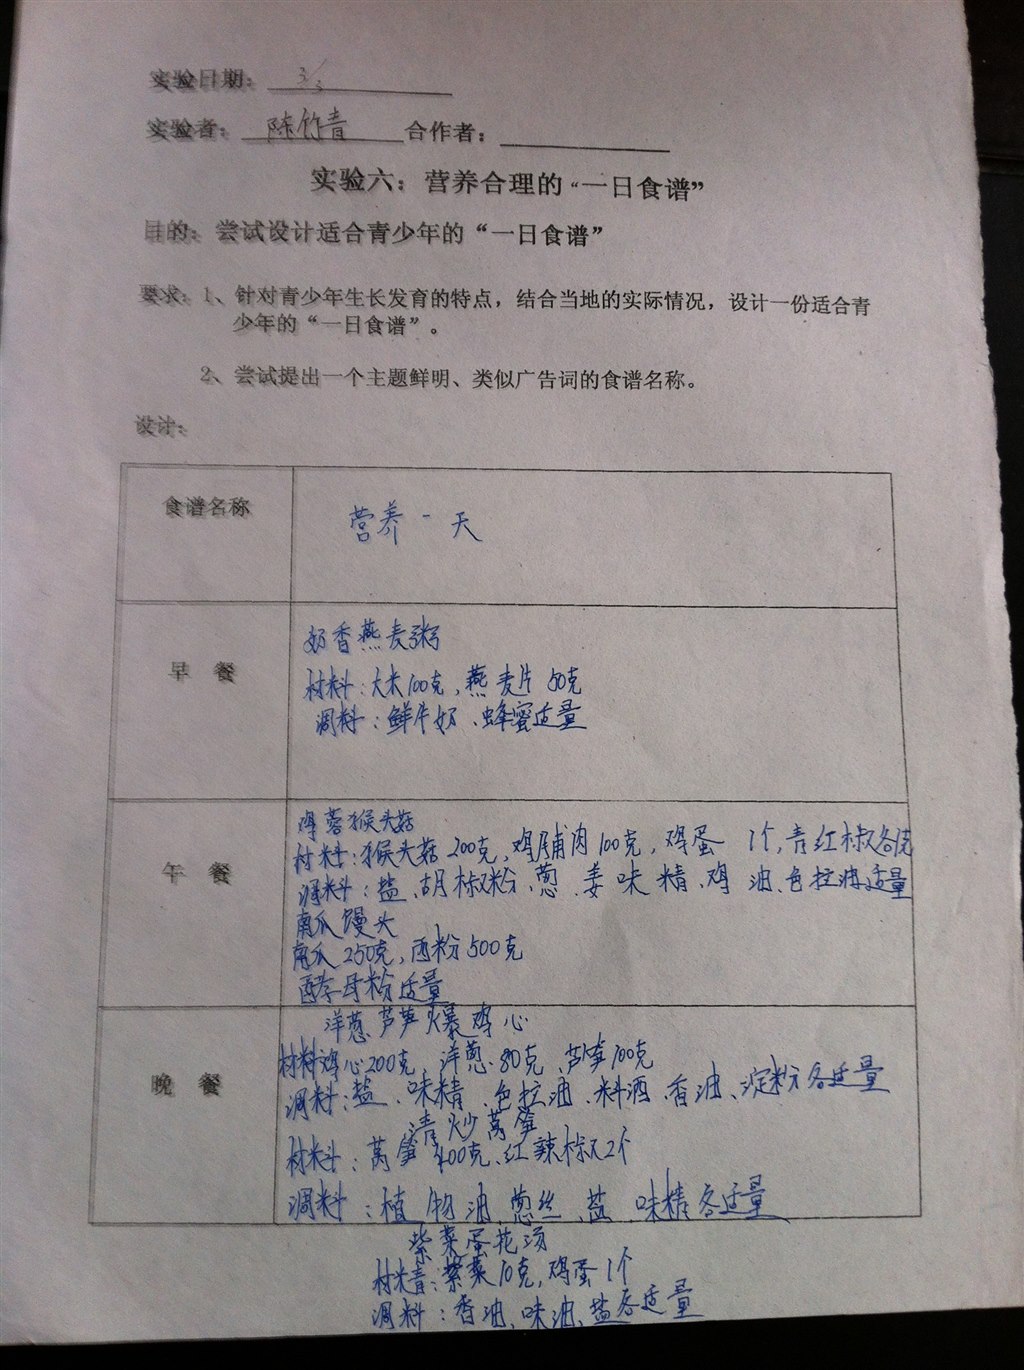 实验日期： 3/3
实验者： 陈竹青 合作者：
实验六：营养合理的“一日食谱”
目的：尝试设计适合青少年的“一日食谱”
要求：1、针对青少年生长发育的特点，结合当地的实际情况，设计一份适合青
少年的“一日食谱”。
2、尝试提出一个主题鲜明、类似广告词的食谱名称。
设计：
食谱名称
营养一天
早 餐
奶香燕麦粥
材料：大米100克，燕麦片50克
调料：鲜牛奶、蜂蜜适量
午 餐
鸡蓉猴头菇
材料：猴头菇200克，鸡脯肉100克，鸡蛋1个，青红椒各克
调料：盐、胡椒粉、葱、姜味精、鸡油、色拉油适量
南瓜馒头
南瓜250克，面粉500克
酵母粉适量
晚 餐
洋葱芦笋爆鸡心
材料鸡心200克、洋葱80克、芦笋100克
调料：盐、味精、色拉油、料酒、香油、淀粉各适量
清炒莴笋
材料：莴笋400克、红辣椒2个
调料：植物油、葱丝、盐、味精各适量
紫菜蛋花汤
材料：紫菜10克，鸡蛋1个
调料：香油、味油、盐各适量